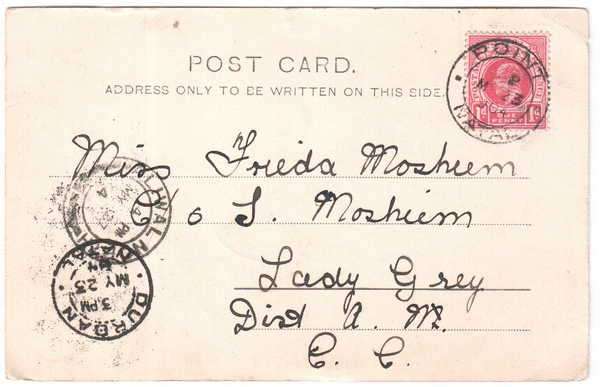 POST CARD.
ADDRESS ONLY TO BE WRITTEN ON THIS SIDE.
POINT
NATAL
Miss Frieda Moshiem
c/o S. Moshiem
Lady Grey
Dist A. N.
C. C.
ALIWAL N
DURBAN
3.PM
MY 23
NATAL